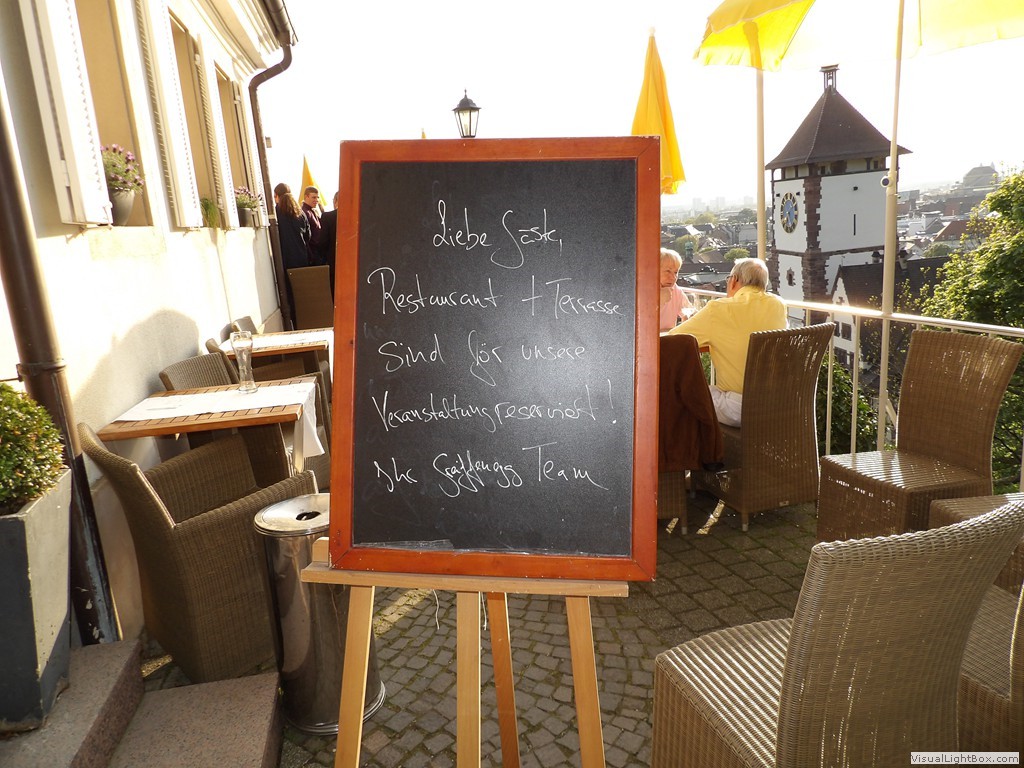 Liebe Gäste,
Restaurant + Terrasse
sind für unsere
Veranstaltung reserviert!
Ihr Greiffenegg Team
VisualLightBox.com